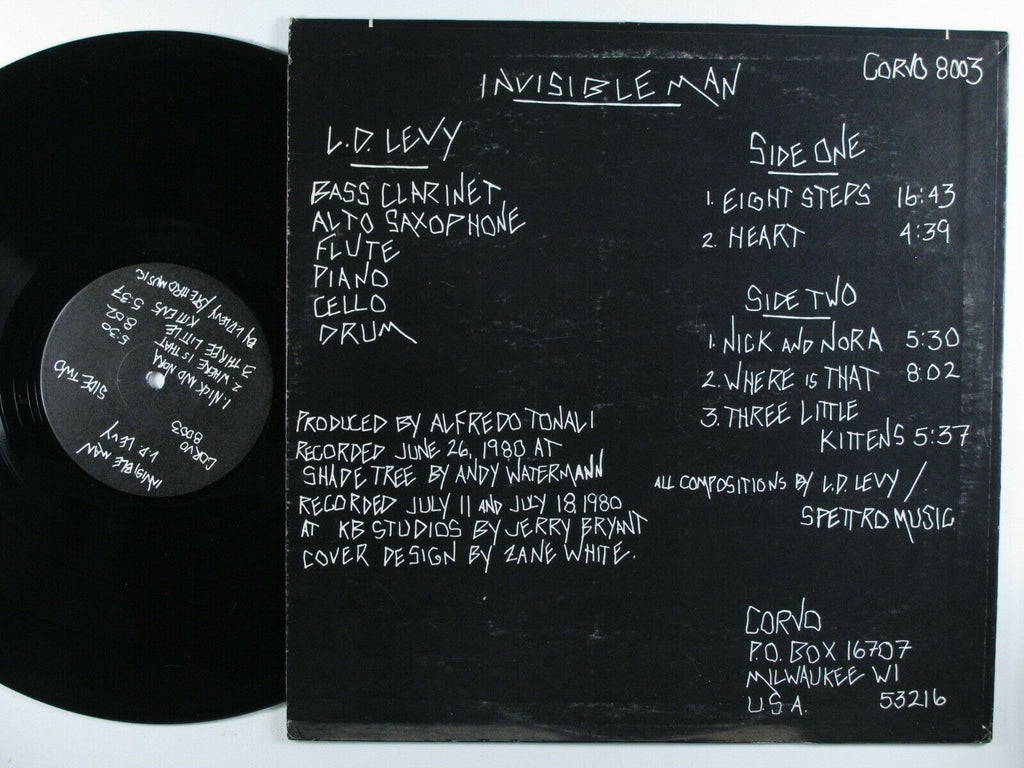 INVISIBLE MAN
CORVO 8003
L.D. LEVY
BASS CLARINET
ALTO SAXOPHONE
FLUTE
PIANO
CELLO
DRUM
PRODUCED BY ALFREDO TONALI
RECORDED JUNE 26, 1980 AT
SHADE TREE BY ANDY WATERMANN
RECORDED JULY 11 AND JULY 18, 1980
AT KB STUDIOS BY JERRY BRYANT
COVER DESIGN BY ZANE WHITE.
SIDE ONE
1. EIGHT STEPS 16:43
2. HEART 4:39
SIDE TWO
1. NICK AND NORA 5:30
2. WHERE IS THAT 8:02
3. THREE LITTLE
KITTENS 5:37
ALL COMPOSITIONS BY L.D. LEVY /
SPETTRO MUSIC
CORVO
P.O. BOX 16707
MILWAUKEE WI
U.S.A. 53216
INVISIBLE MAN
L.D. LEVY
CORVO
8003
SIDE TWO
1. NICK AND NORA 5:30
2. WHERE IS THAT 8:02
3. THREE LITTLE
KITTENS 5:37
BY L.D. LEVY/SPETTRO MUSIC